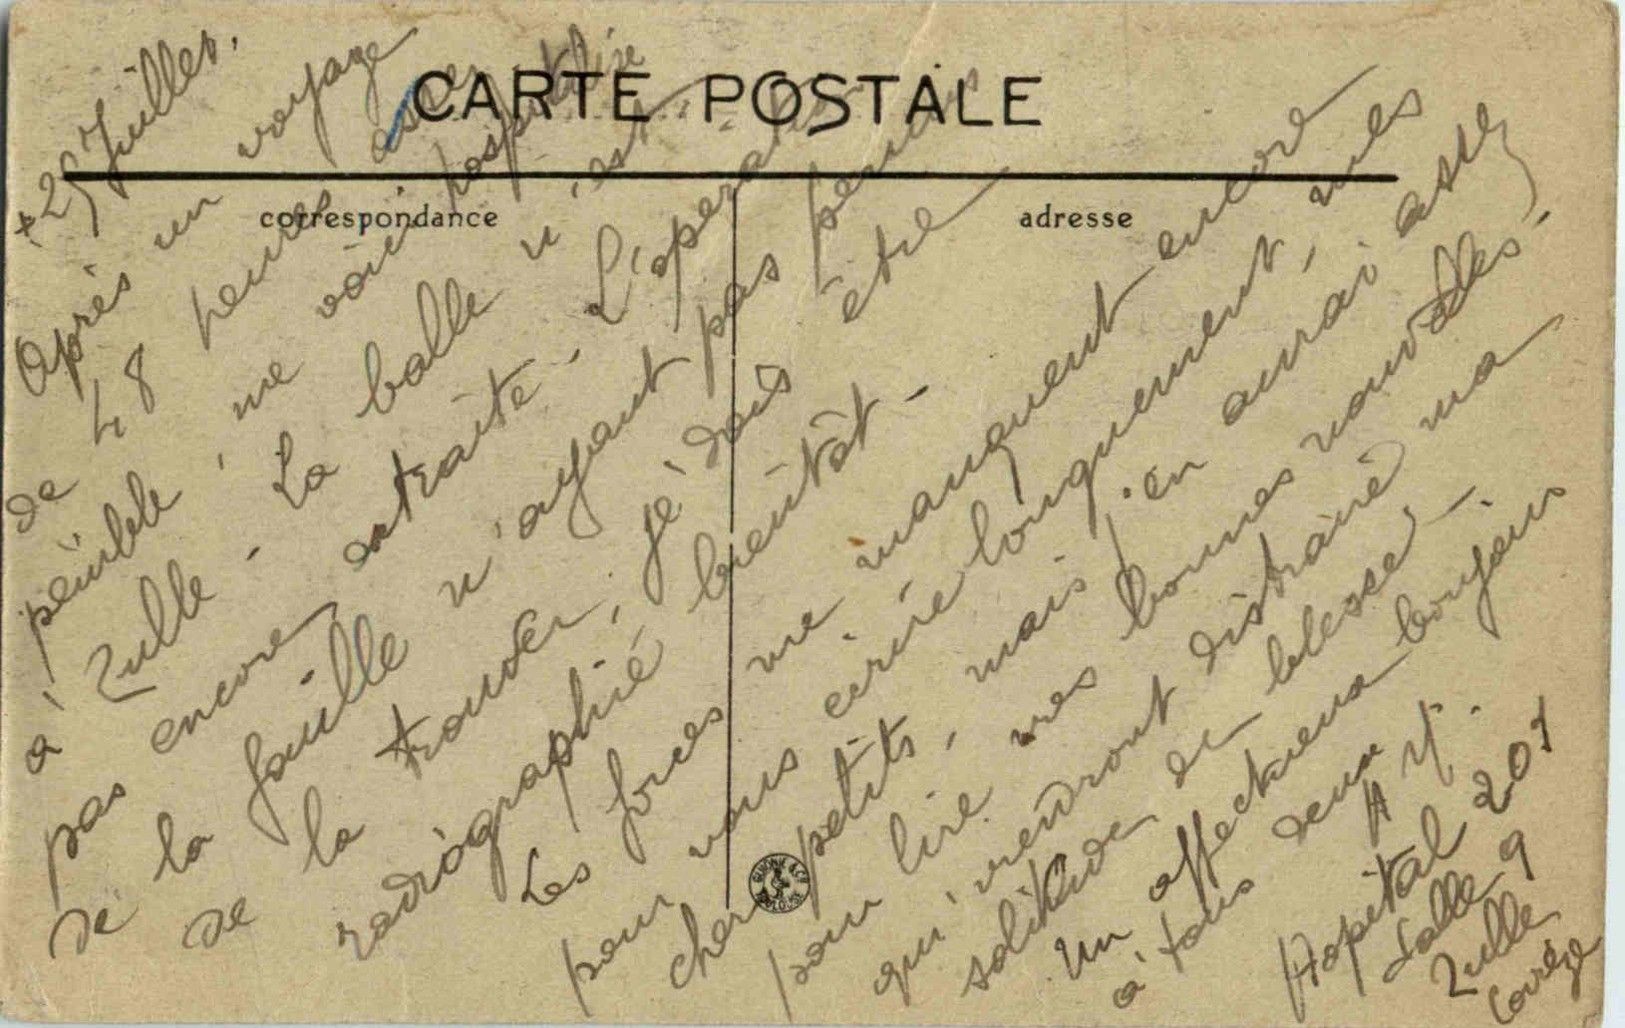 CARTE POSTALE
correspondance
adresse
+ 25 Juillet.
Après un voyage
de 48 heures assez
pénible, me voici hospitalisé
à Tulle - La balle n'est
pas encore extraite -
de la fouille n'ayant pas permis
de la trouver, je dois être
radiographié bientôt -
Les forces me manquent encore
pour vous écrire longuement, mes
chers petits, mais j'en aurai assez
pour lire vos bonnes nouvelles,
qui viendront distraire ma
solitude de blessé -
Un affectueux bonjour
à tous deux
Hopital 201
Salle 9
Tulle
Corrèze